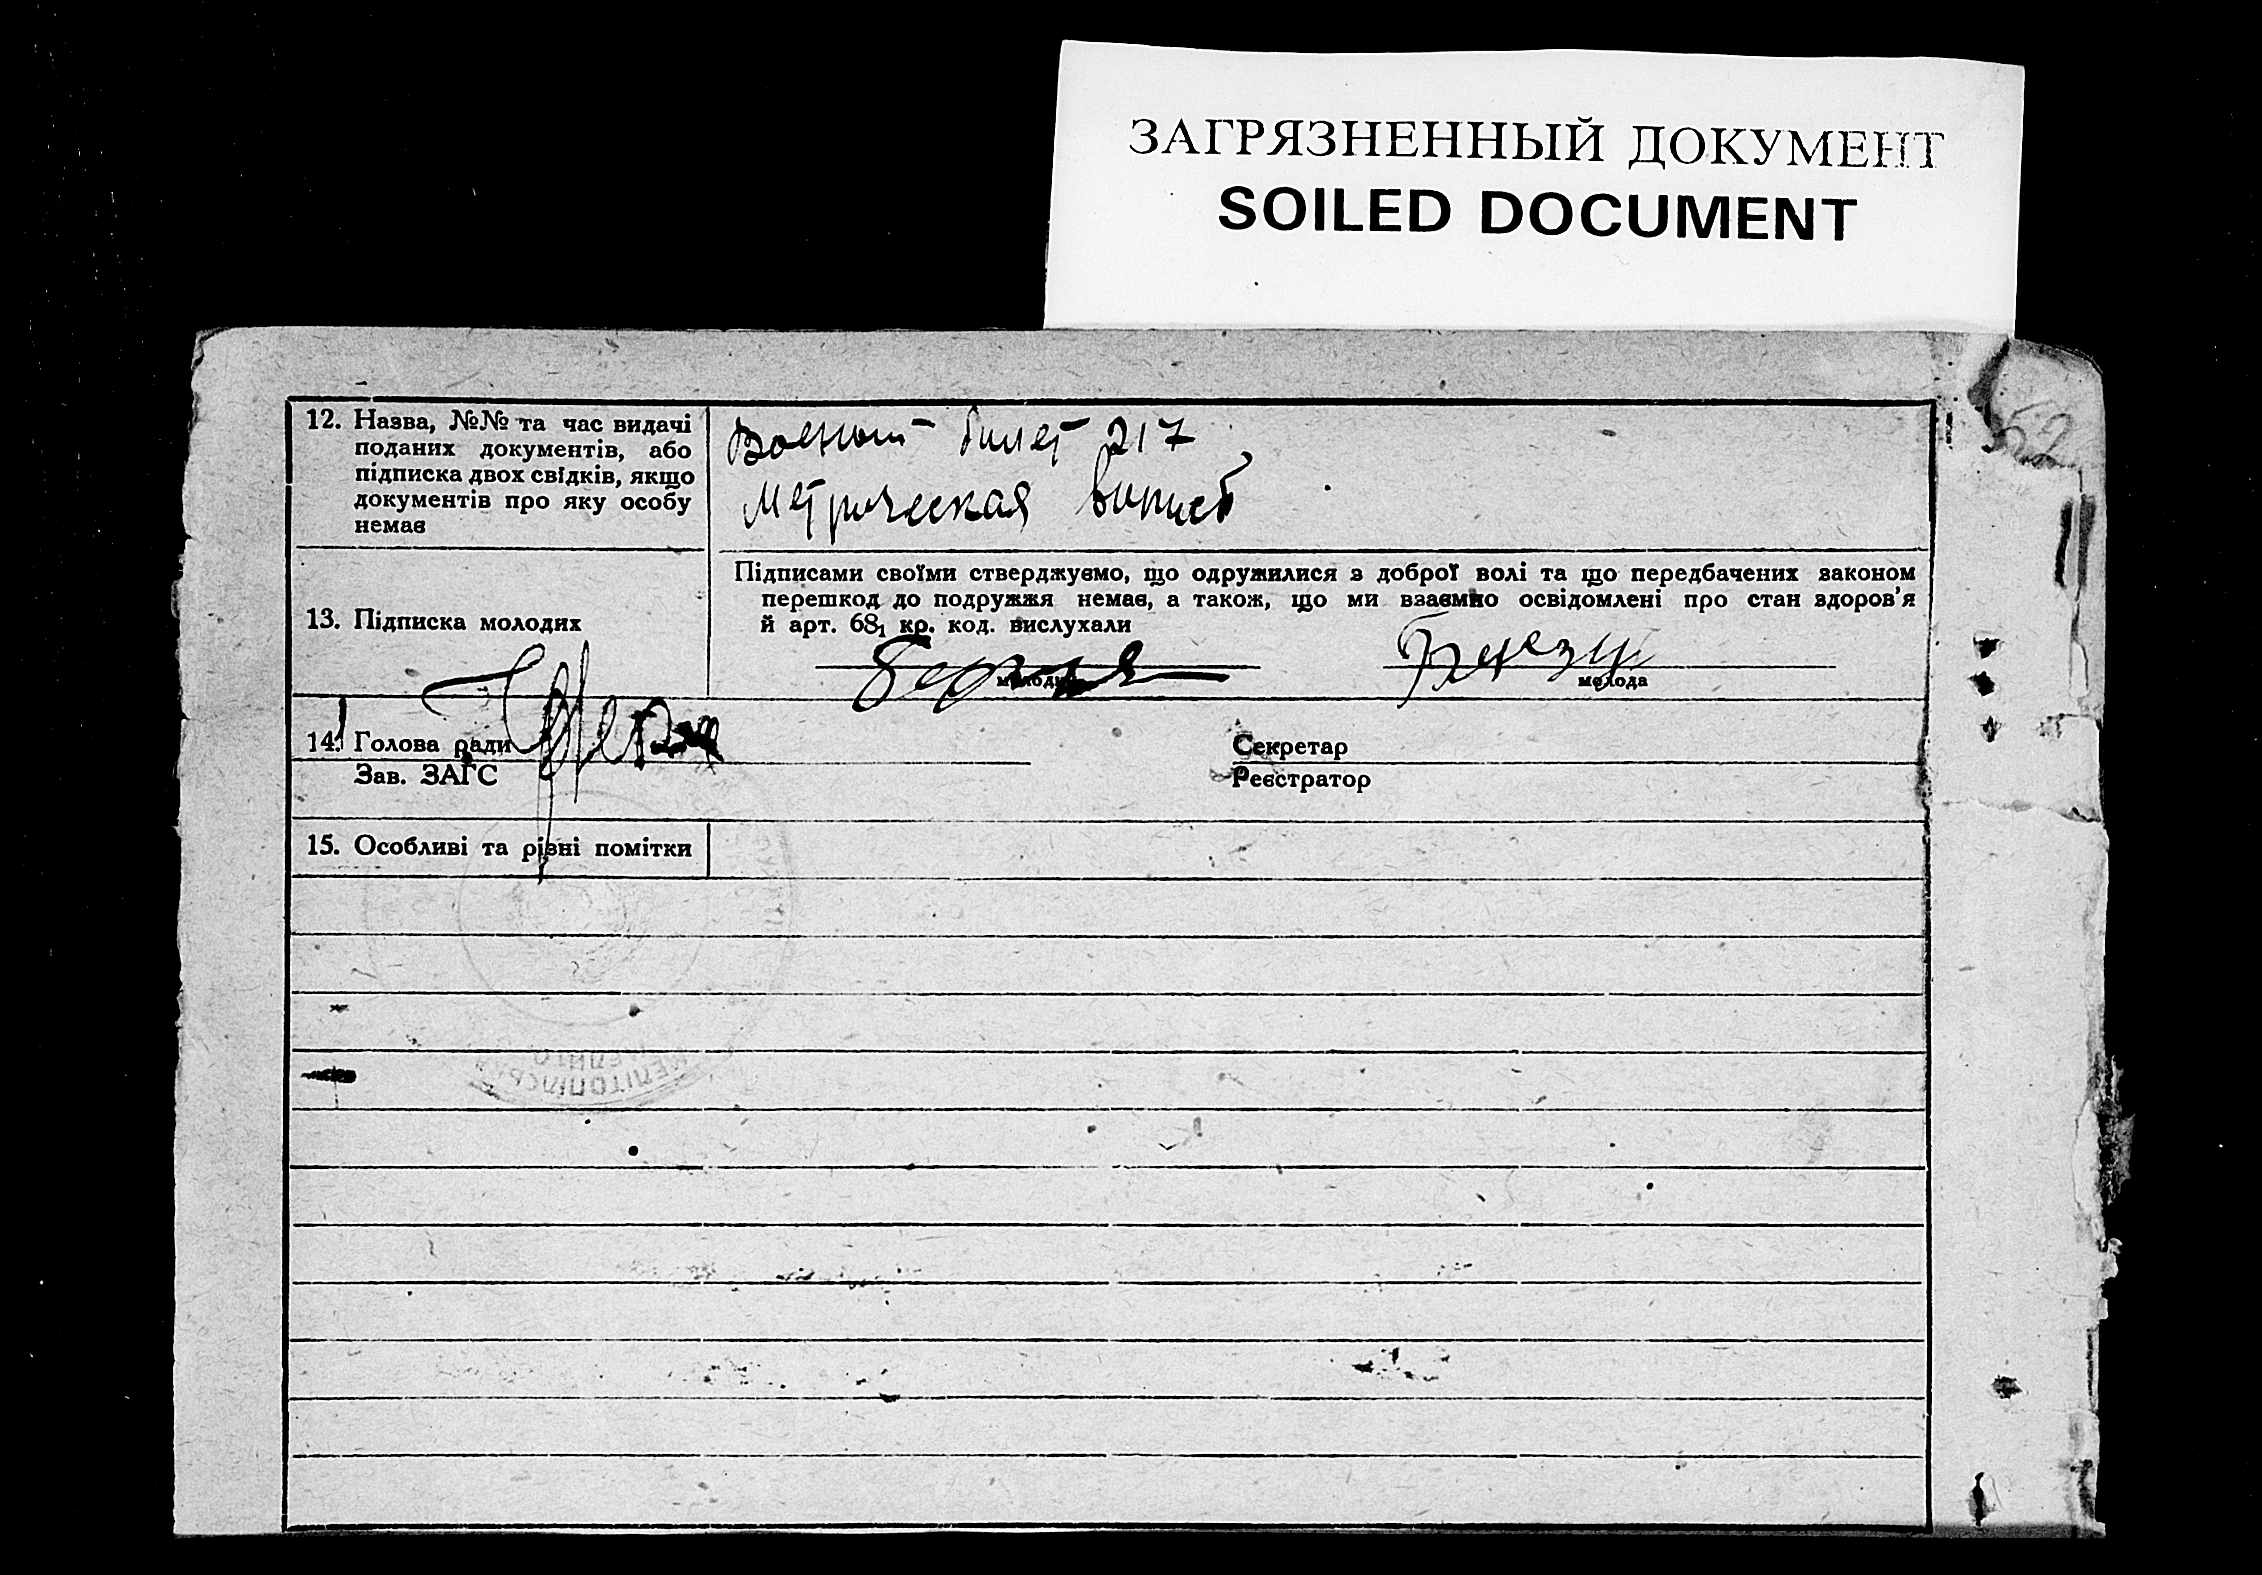 ЗАГРЯЗНЕННЫЙ ДОКУМЕНТ
SOILED DOCUMENT
52
12. Назва, №№ та час видачі
поданих документів, або
підписка двох свідків, якщо
документів про яку особу
немає
Военный билет 217
Метрическая
Підписами своїми стверджуємо, що одружилися з доброї волі та що передбачених законом
перешкод до подружжя немає, а також, що ми взаємно освідомлені про стан здоров'я
й арт. 68₁ кр. код. вислухали
13. Підписка молодих
молодий
молода
14. Голова ради
Зав. ЗАГС
Секретар
Реєстратор
15. Особливі та різні помітки